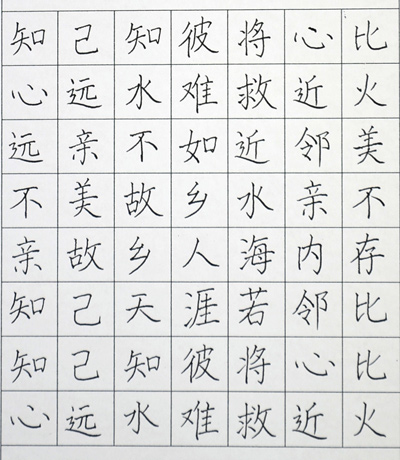 知己知彼将心比
心远水难救近火
远亲不如近邻美
不美故乡水亲不
亲故乡人海内存
知己天涯若邻比
知己知彼将心比
心远水难救近火